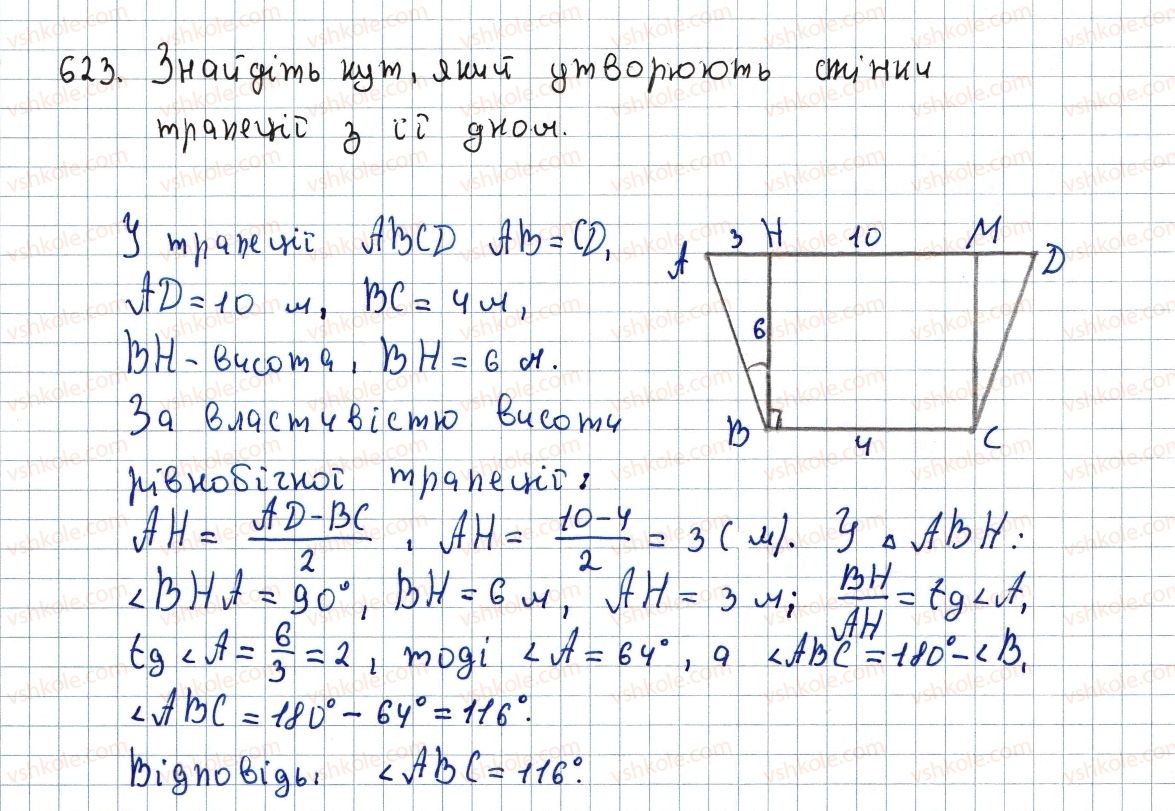 623. Знайдіть кут, який утворюють стінки
трапеції з її дном.
У трапеції ABCD AB = CD,
AD = 10 м, BC = 4 м,
BH - висота, BH = 6 м.
За властивістю висоти
рівнобічної трапеції:
AH = (AD - BC)/2, AH = (10 - 4)/2 = 3 (м). У △ ABH:
∠BHA = 90°, BH = 6 м, AH = 3 м; BH/AH = tg∠A,
tg∠A = 6/3 = 2, тоді ∠A = 64°, а ∠ABC = 180° - ∠B,
∠ABC = 180° - 64° = 116°.
Відповідь: ∠ABC = 116°.
A 3 H 10 M D
6
B 4 C
vshkole.com